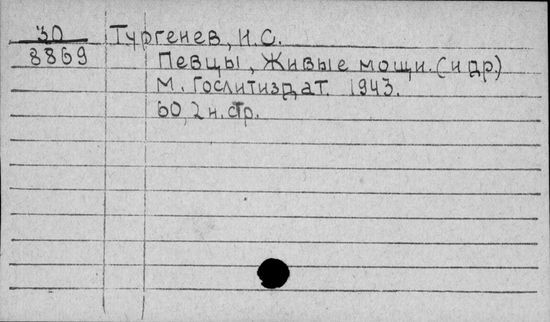 30 Тургенев, И.С.
8869 Певцы, Живые мощи. (и др.)
М. Гослитиздат. 1943.
60, 2 н. стр.